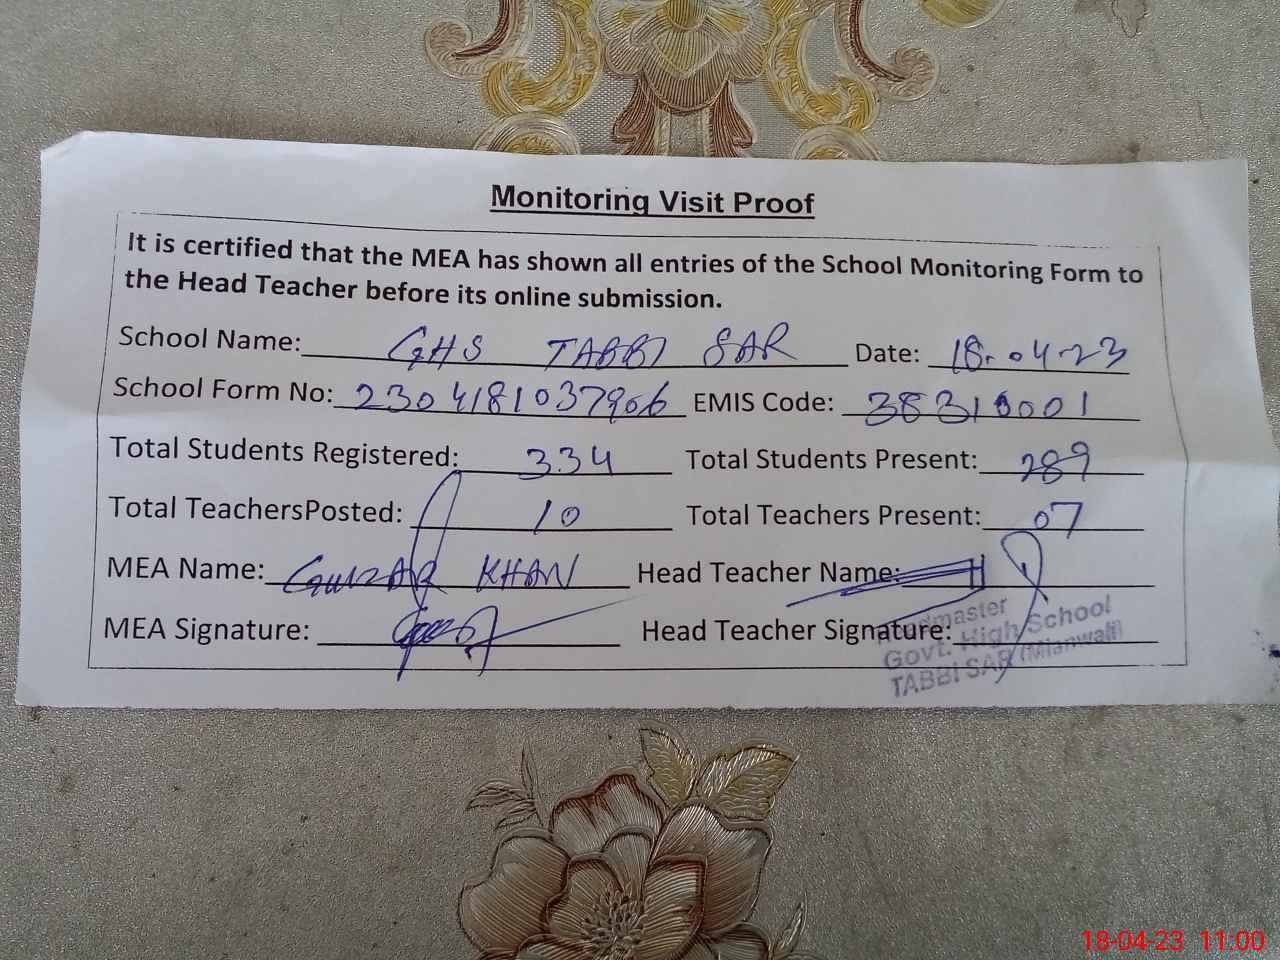 Monitoring Visit Proof
It is certified that the MEA has shown all entries of the School Monitoring Form to
the Head Teacher before its online submission.
School Name: GHS TABBI SAR Date: 18-04-23
School Form No: 2304181037906 EMIS Code: 38310001
Total Students Registered: 334 Total Students Present: 289
Total TeachersPosted: 10 Total Teachers Present: 07
MEA Name: GULZAR KHAN Head Teacher Name:
MEA Signature: Head Teacher Signature:
Headmaster
Govt. High School
TABBI SAR (Mianwali)
18-04-23 11:00